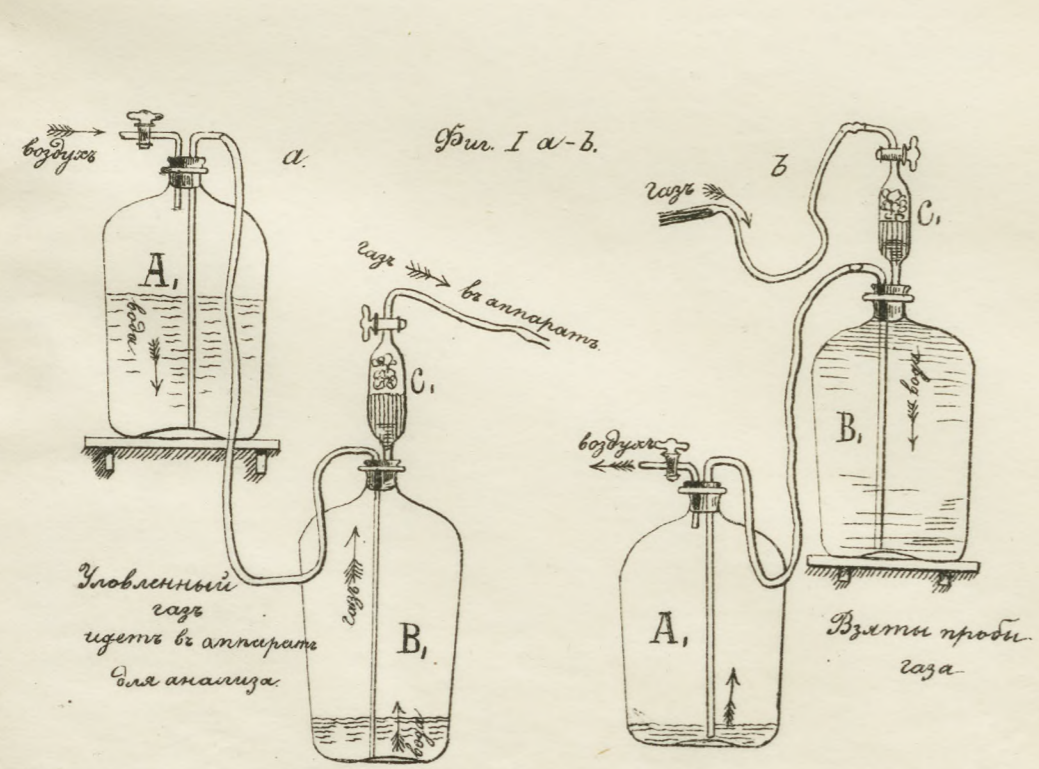 Фиг. I a-b.
a.
воздухъ
A,
вода
газъ
въ аппаратъ.
C,
газъ
B,
вода
Уловленный
газъ
идетъ въ аппаратъ
для анализа.
b
газъ
C,
вода
B,
воздухъ
A,
Взяты пробы
газа